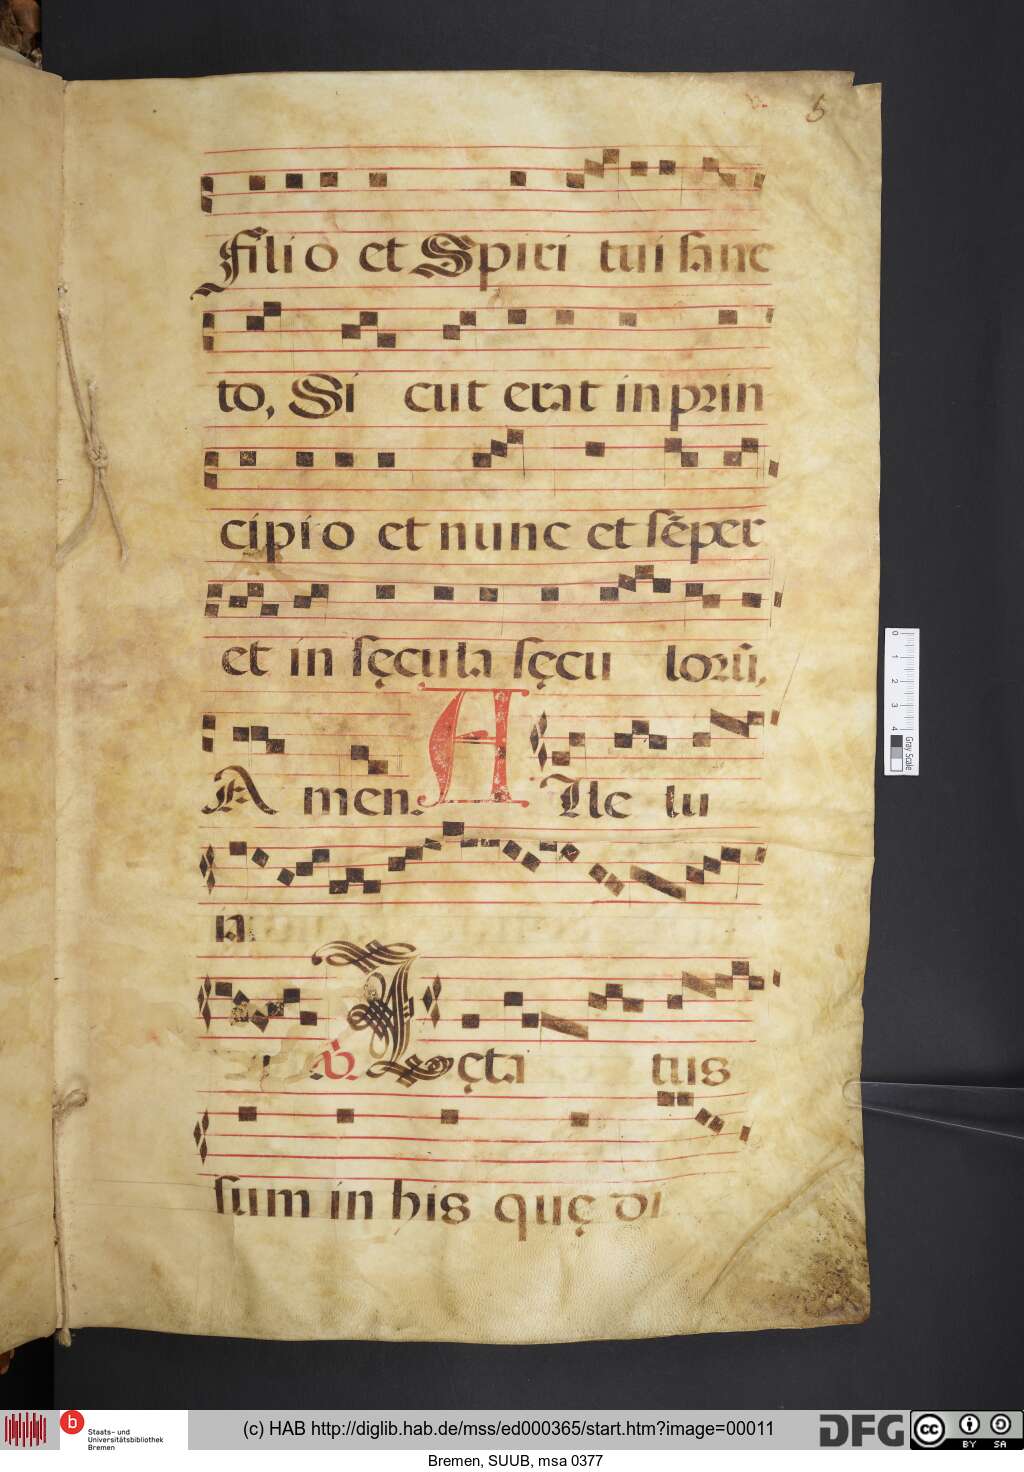 5
Filio et Spiri tui sanc
to, Si cut erat in prin
cipio et nunc et sēper
et in sęcula sęcu lorū,
Amen. Alle lu
ia
℣. Lęta tus
sum in his quę di
0 1 2 3 4
Gray Scale
Staats- und
Universitätsbibliothek
Bremen
(c) HAB http://diglib.hab.de/mss/ed000365/start.htm?image=00011
DFG
cc BY SA
Bremen, SUUB, msa 0377